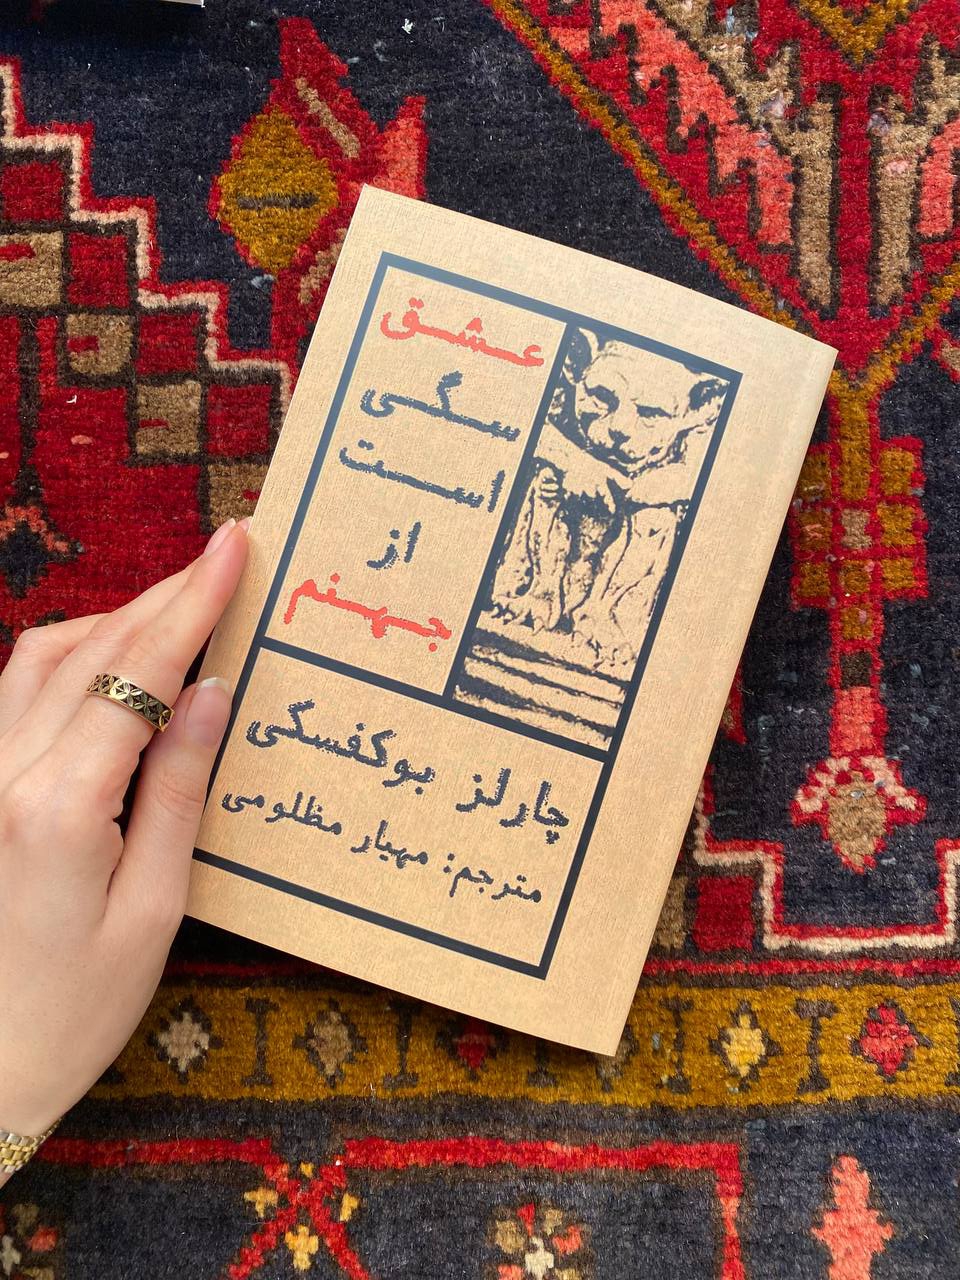 عشق
سگی
است
از
جهنم
چارلز بوکفسگی
مترجم: مهیار مظلومی